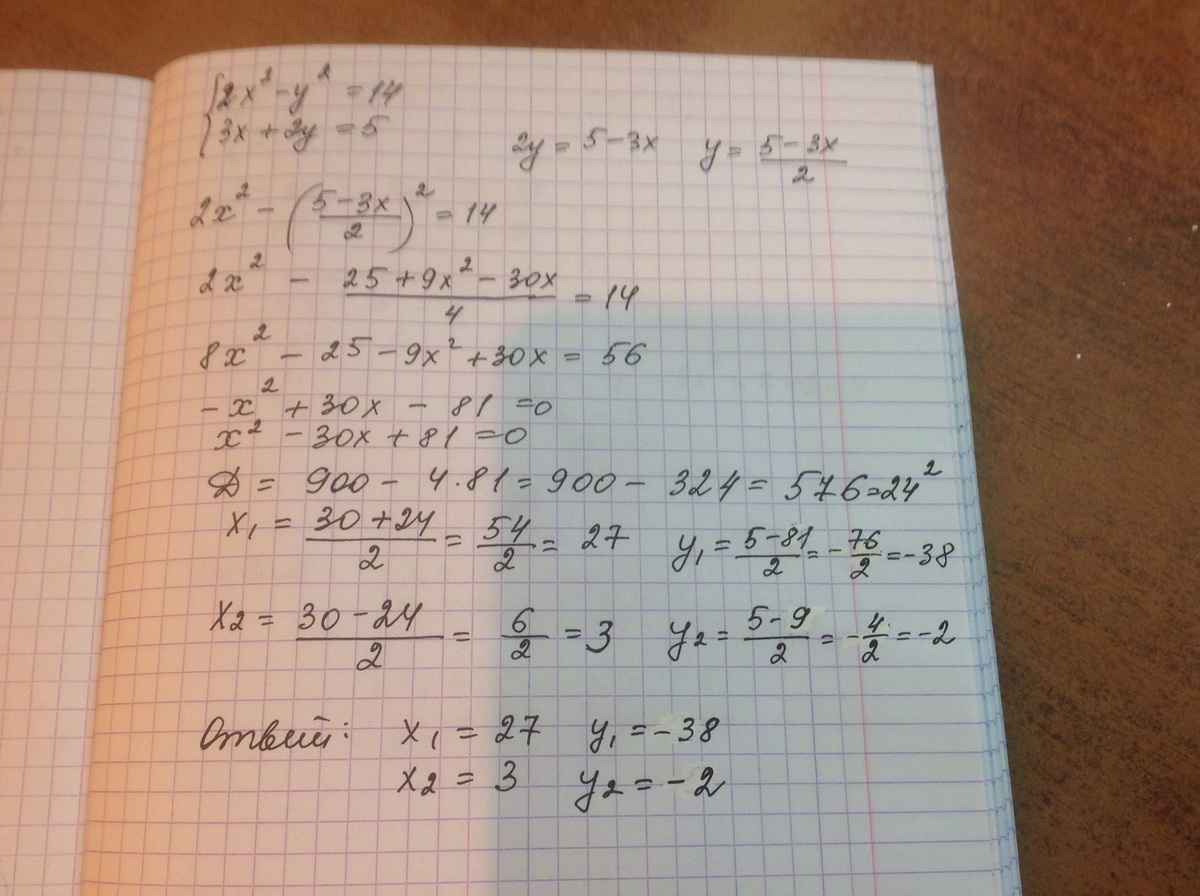 {2x² - y² = 14
{3x + 2y = 5
2y = 5 - 3x   y = (5 - 3x)/2
2x² - ((5 - 3x)/2)² = 14
2x² - (25 + 9x² - 30x)/4 = 14
8x² - 25 - 9x² + 30x = 56
-x² + 30x - 81 = 0
x² - 30x + 81 = 0
D = 900 - 4·81 = 900 - 324 = 576 = 24²
x₁ = (30 + 24)/2 = 54/2 = 27   y₁ = (5 - 81)/2 = -76/2 = -38
x₂ = (30 - 24)/2 = 6/2 = 3   y₂ = (5 - 9)/2 = -4/2 = -2
Ответ: x₁ = 27   y₁ = -38
x₂ = 3   y₂ = -2